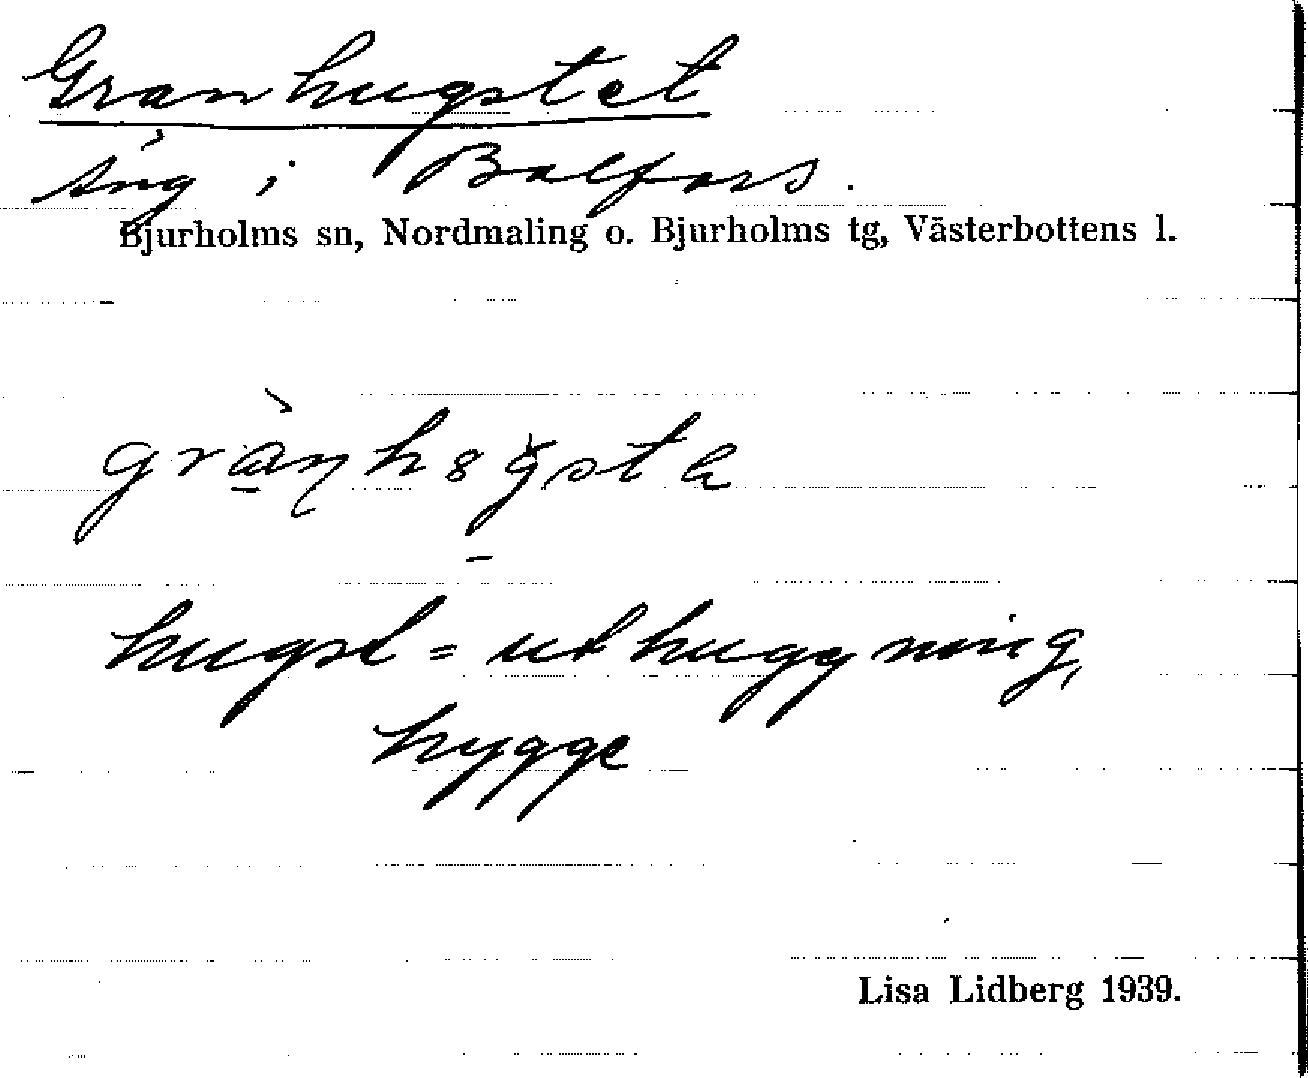 Granhugstet
äng i Balfors.
Bjurholms sn, Nordmaling o. Bjurholms tg, Västerbottens l.
hugst = uthuggning,
hygge
Lisa Lidberg 1939.